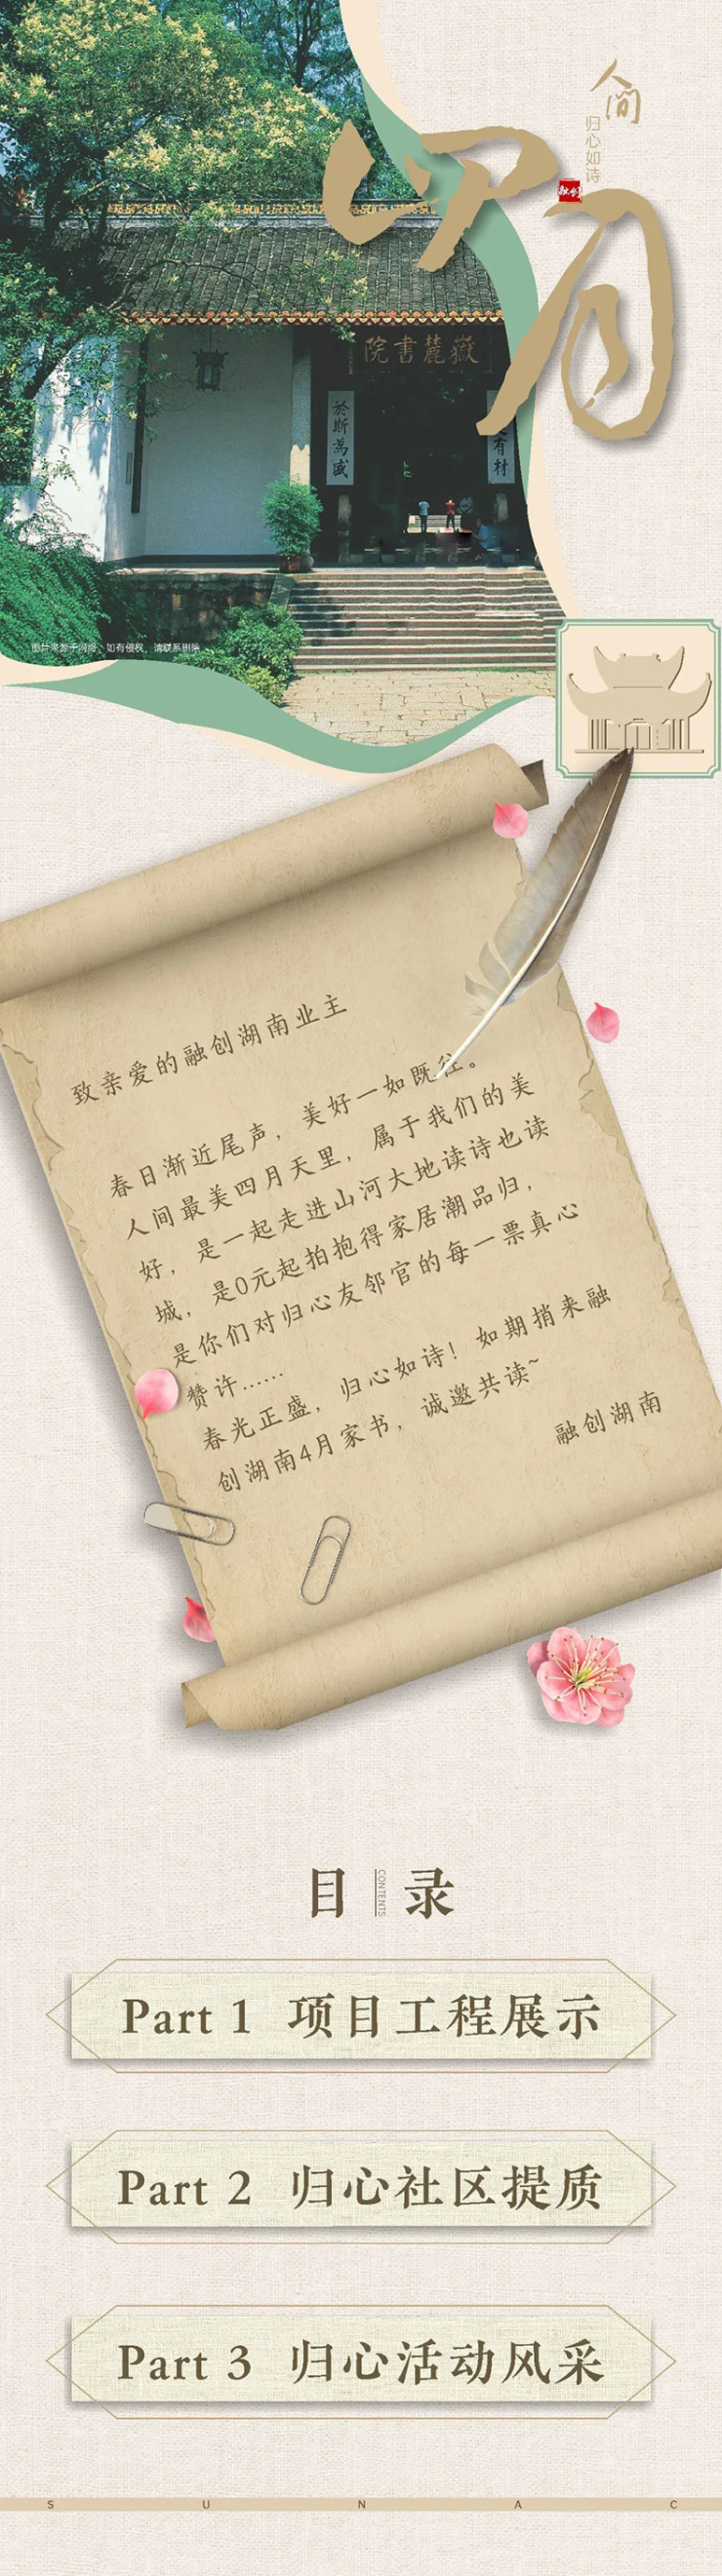 人间
四月
归心如诗
融创
嶽麓書院
有材
於斯為盛
图片来源于网络，如有侵权，请联系删除
致亲爱的融创湖南业主
春日渐近尾声，美好一如既往。
人间最美四月天里，属于我们的美
好，是一起走进山河大地读诗也读
城，是0元起拍抱得家居潮品归，
是你们对归心友邻官的每一票真心
赞许……
春光正盛，归心如诗！如期捎来融
创湖南4月家书，诚邀共读~
融创湖南
目录
CONTENTS
Part 1 项目工程展示
Part 2 归心社区提质
Part 3 归心活动风采
S U N A C